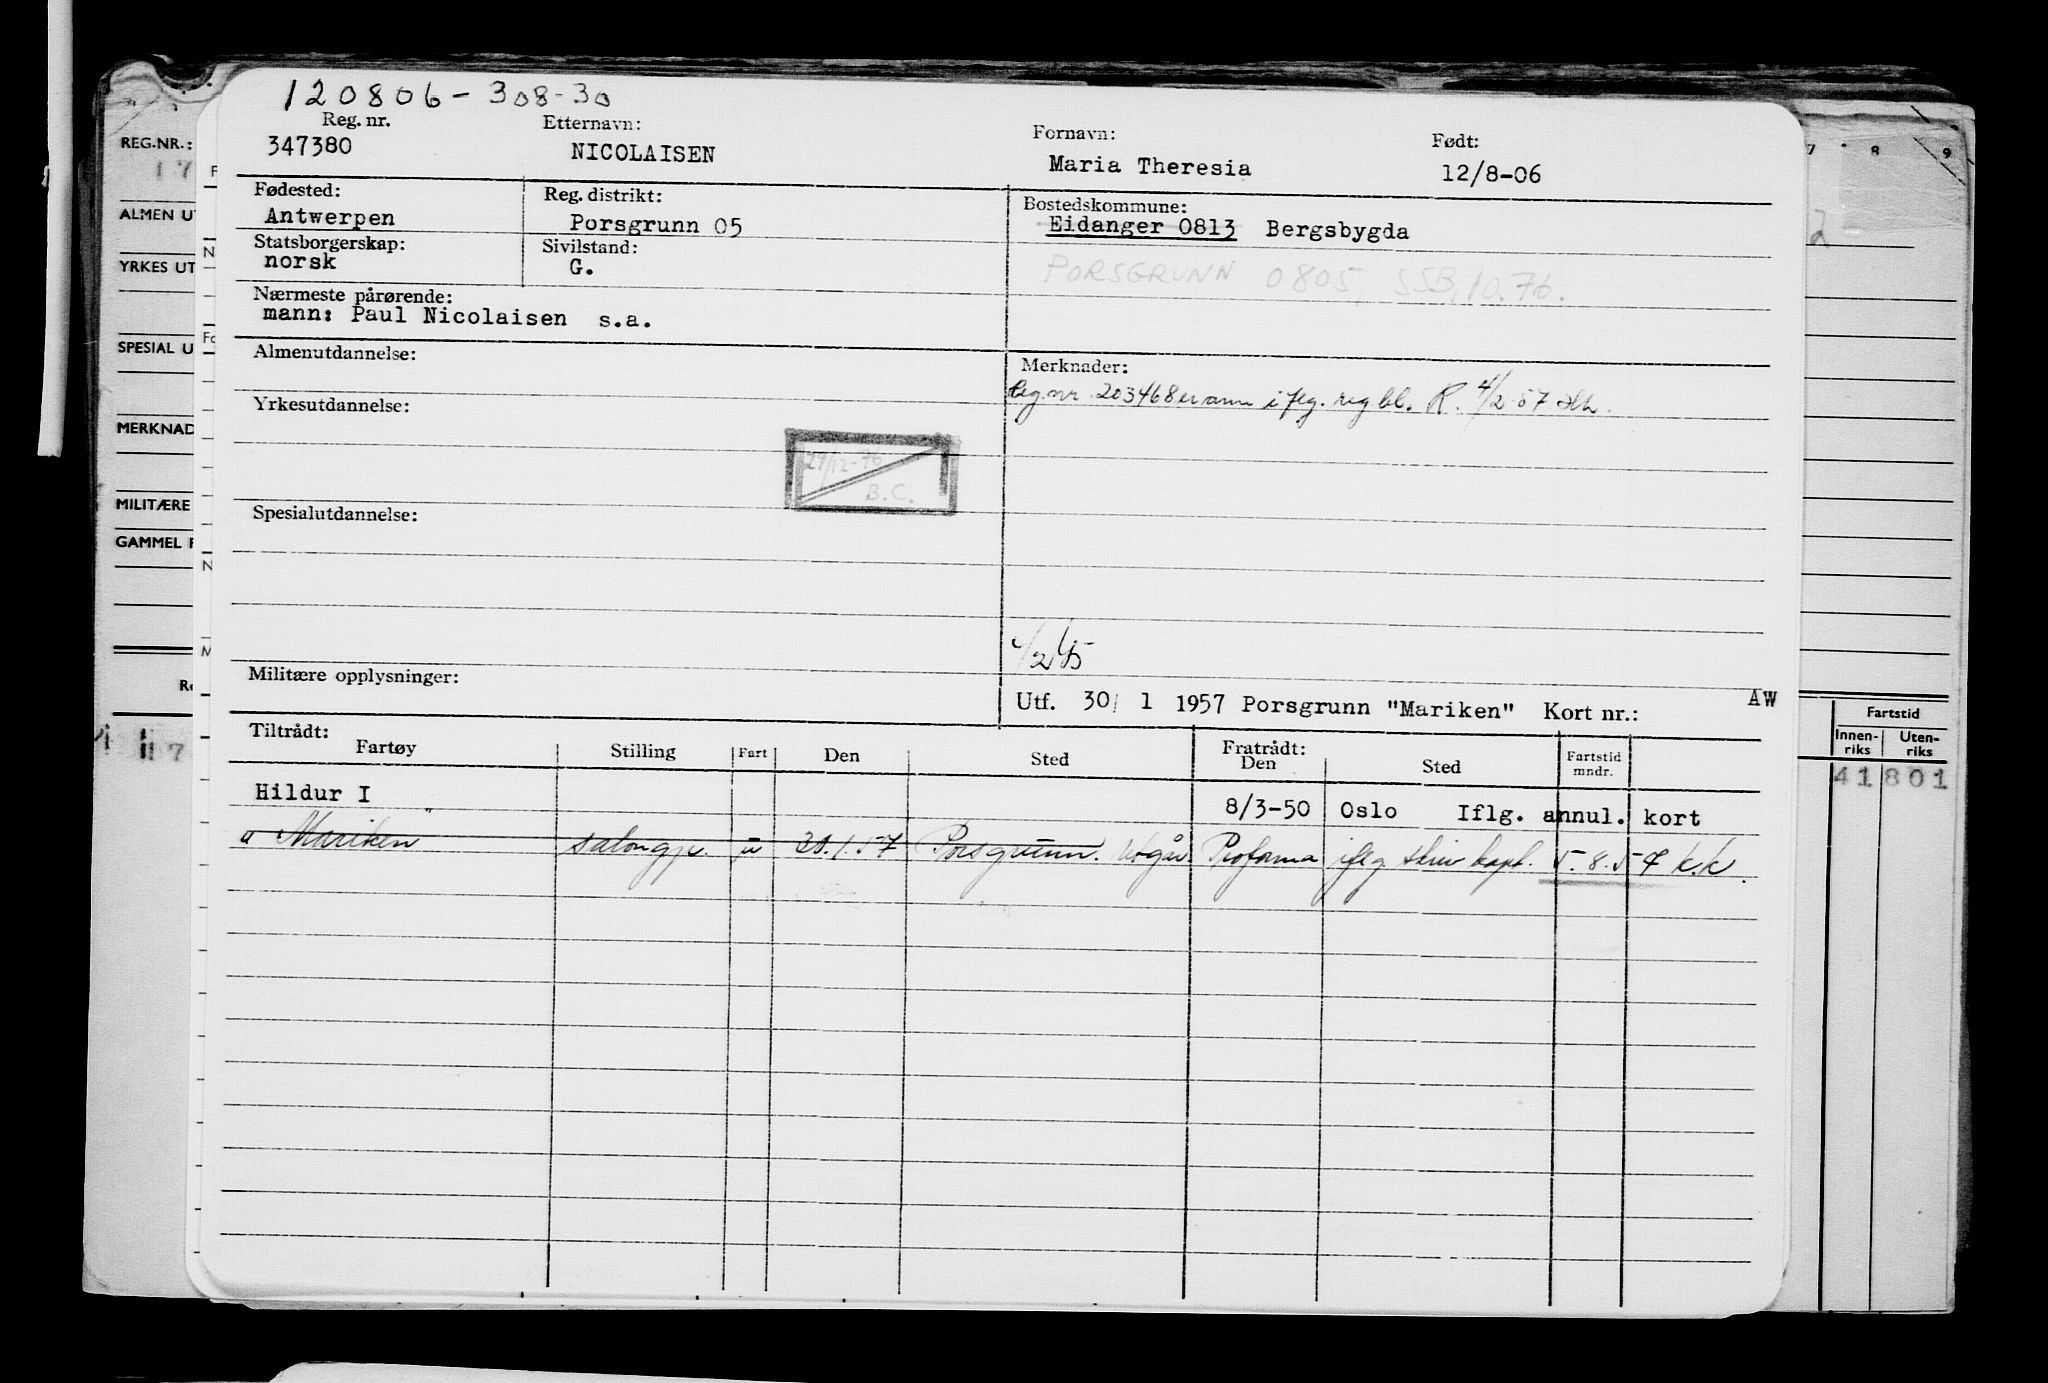 120806-308-30
Reg. nr. Etternavn: Fornavn: Født:
347380 NICOLAISEN Maria Theresia 12/8-06
Fødested: Reg. distrikt: Bostedskommune:
Antwerpen Porsgrunn 05 Eidanger 0813 Bergsbygda
Statsborgerskap: Sivilstand:
norsk G.
PORSGRUNN 0805, SSB, 10.76.
Nærmeste pårørende:
mann: Paul Nicolaisen s.a.
Almenutdannelse: Merknader:
Reg nr. 203468 er ann iflg. reg bl. R. 4/2-57
Yrkesutdannelse:
29/12-76
B.C.
Spesialutdannelse:
Militære opplysninger:
Utf. 30/ 1 1957 Porsgrunn "Mariken" Kort nr.: AW
Tiltrådt: Fratrådt:
Fartøy Stilling Fart Den Sted Den Sted Fartstid mndr.
Hildur I 8/3-50 Oslo Iflg. annul. kort
" Mariken " salongp. u 30.1.57 Porsgrunn. Utgår Proforma iflg skriv kapt. 5.8.57 K.K.
REG.NR.:
17
ALMEN UT
YRKES UT
SPESIAL U
MERKNAD
MILITÆRE
GAMMEL F
7 8 9
2
Fartstid
Innen-
riks
Uten-
riks
41 801